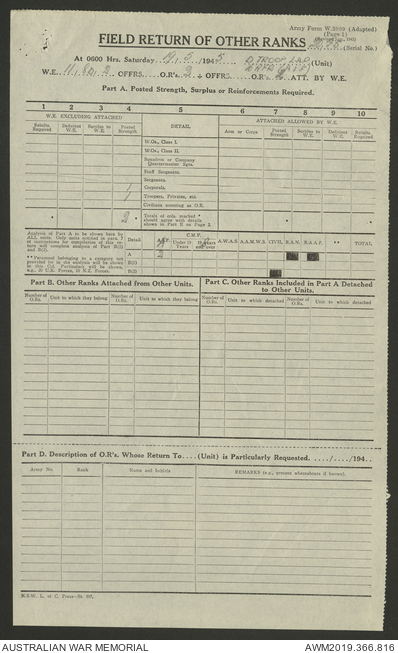 Army Form W.3009 (Adapted)
(Page 1)
FIELD RETURN OF OTHER RANKS
(Serial No.)
At 0600 Hrs. Saturday 19/5/1945 D TROOP (Unit)
W.E. OFFRS. O.R's. 2 + OFFRS. O.R's. ATT. BY W.E.
Part A. Posted Strength, Surplus or Reinforcements Required.
1 2 3 4 5 6 7 8 9 10
W.E. EXCLUDING ATTACHED DETAIL ATTACHED ALLOWED BY W.E.
Reinfts. Required Deficient W.E. Surplus to W.E. Posted Strength Arm or Corps Posted Strength Surplus to W.E. Deficient W.E. Reinfts. Required
W.Os., Class I.
W.Os., Class II.
Squadron or Company Quartermaster Sgts.
Staff Sergeants.
Sergeants.
1 Corporals.
1 Troopers, Privates, etc.
Civilians counting as O.R.
* 2 * Totals of cols. marked * should agree with details shown in Part II on Page 2. * *
Analysis of Part A to be shown here by ALL units. Only units entitled in para. 7 of instructions for compilation of this return will complete analysis of Part B(i) and B(ii).
** Personnel belonging to a category not provided for in the analysis will be shown in this Col. Particulars will be shown, e.g., 20 U.K. Forces, 15 N.Z. Forces.
Detail A.I.F. C.M.F. Under 19 Years 19 years and over A.W.A.S. A.A.M.W.S. CIVIL R.A.N. R.A.A.F. ** TOTAL
A 2
B(i)
B(ii)
Part B. Other Ranks Attached from Other Units.
Part C. Other Ranks Included in Part A Detached to Other Units.
Number of O.Rs. Unit to which they belong Number of O.Rs. Unit to which they belong Number of O.Rs. Unit to which detached Number of O.Rs. Unit to which detached
Part D. Description of O.R's. Whose Return To....(Unit) is Particularly Requested. ..../..../194..
Army No. Rank Name and Initials REMARKS (i.e., present whereabouts if known).
AUSTRALIAN WAR MEMORIAL AWM2019.366.816